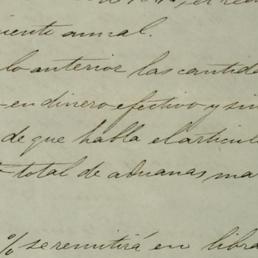 uento anual.
lo anterior las cantida
en dinero efectivo y sin
de que habla el articul
total de aduanas ma
% se remitirá en libra